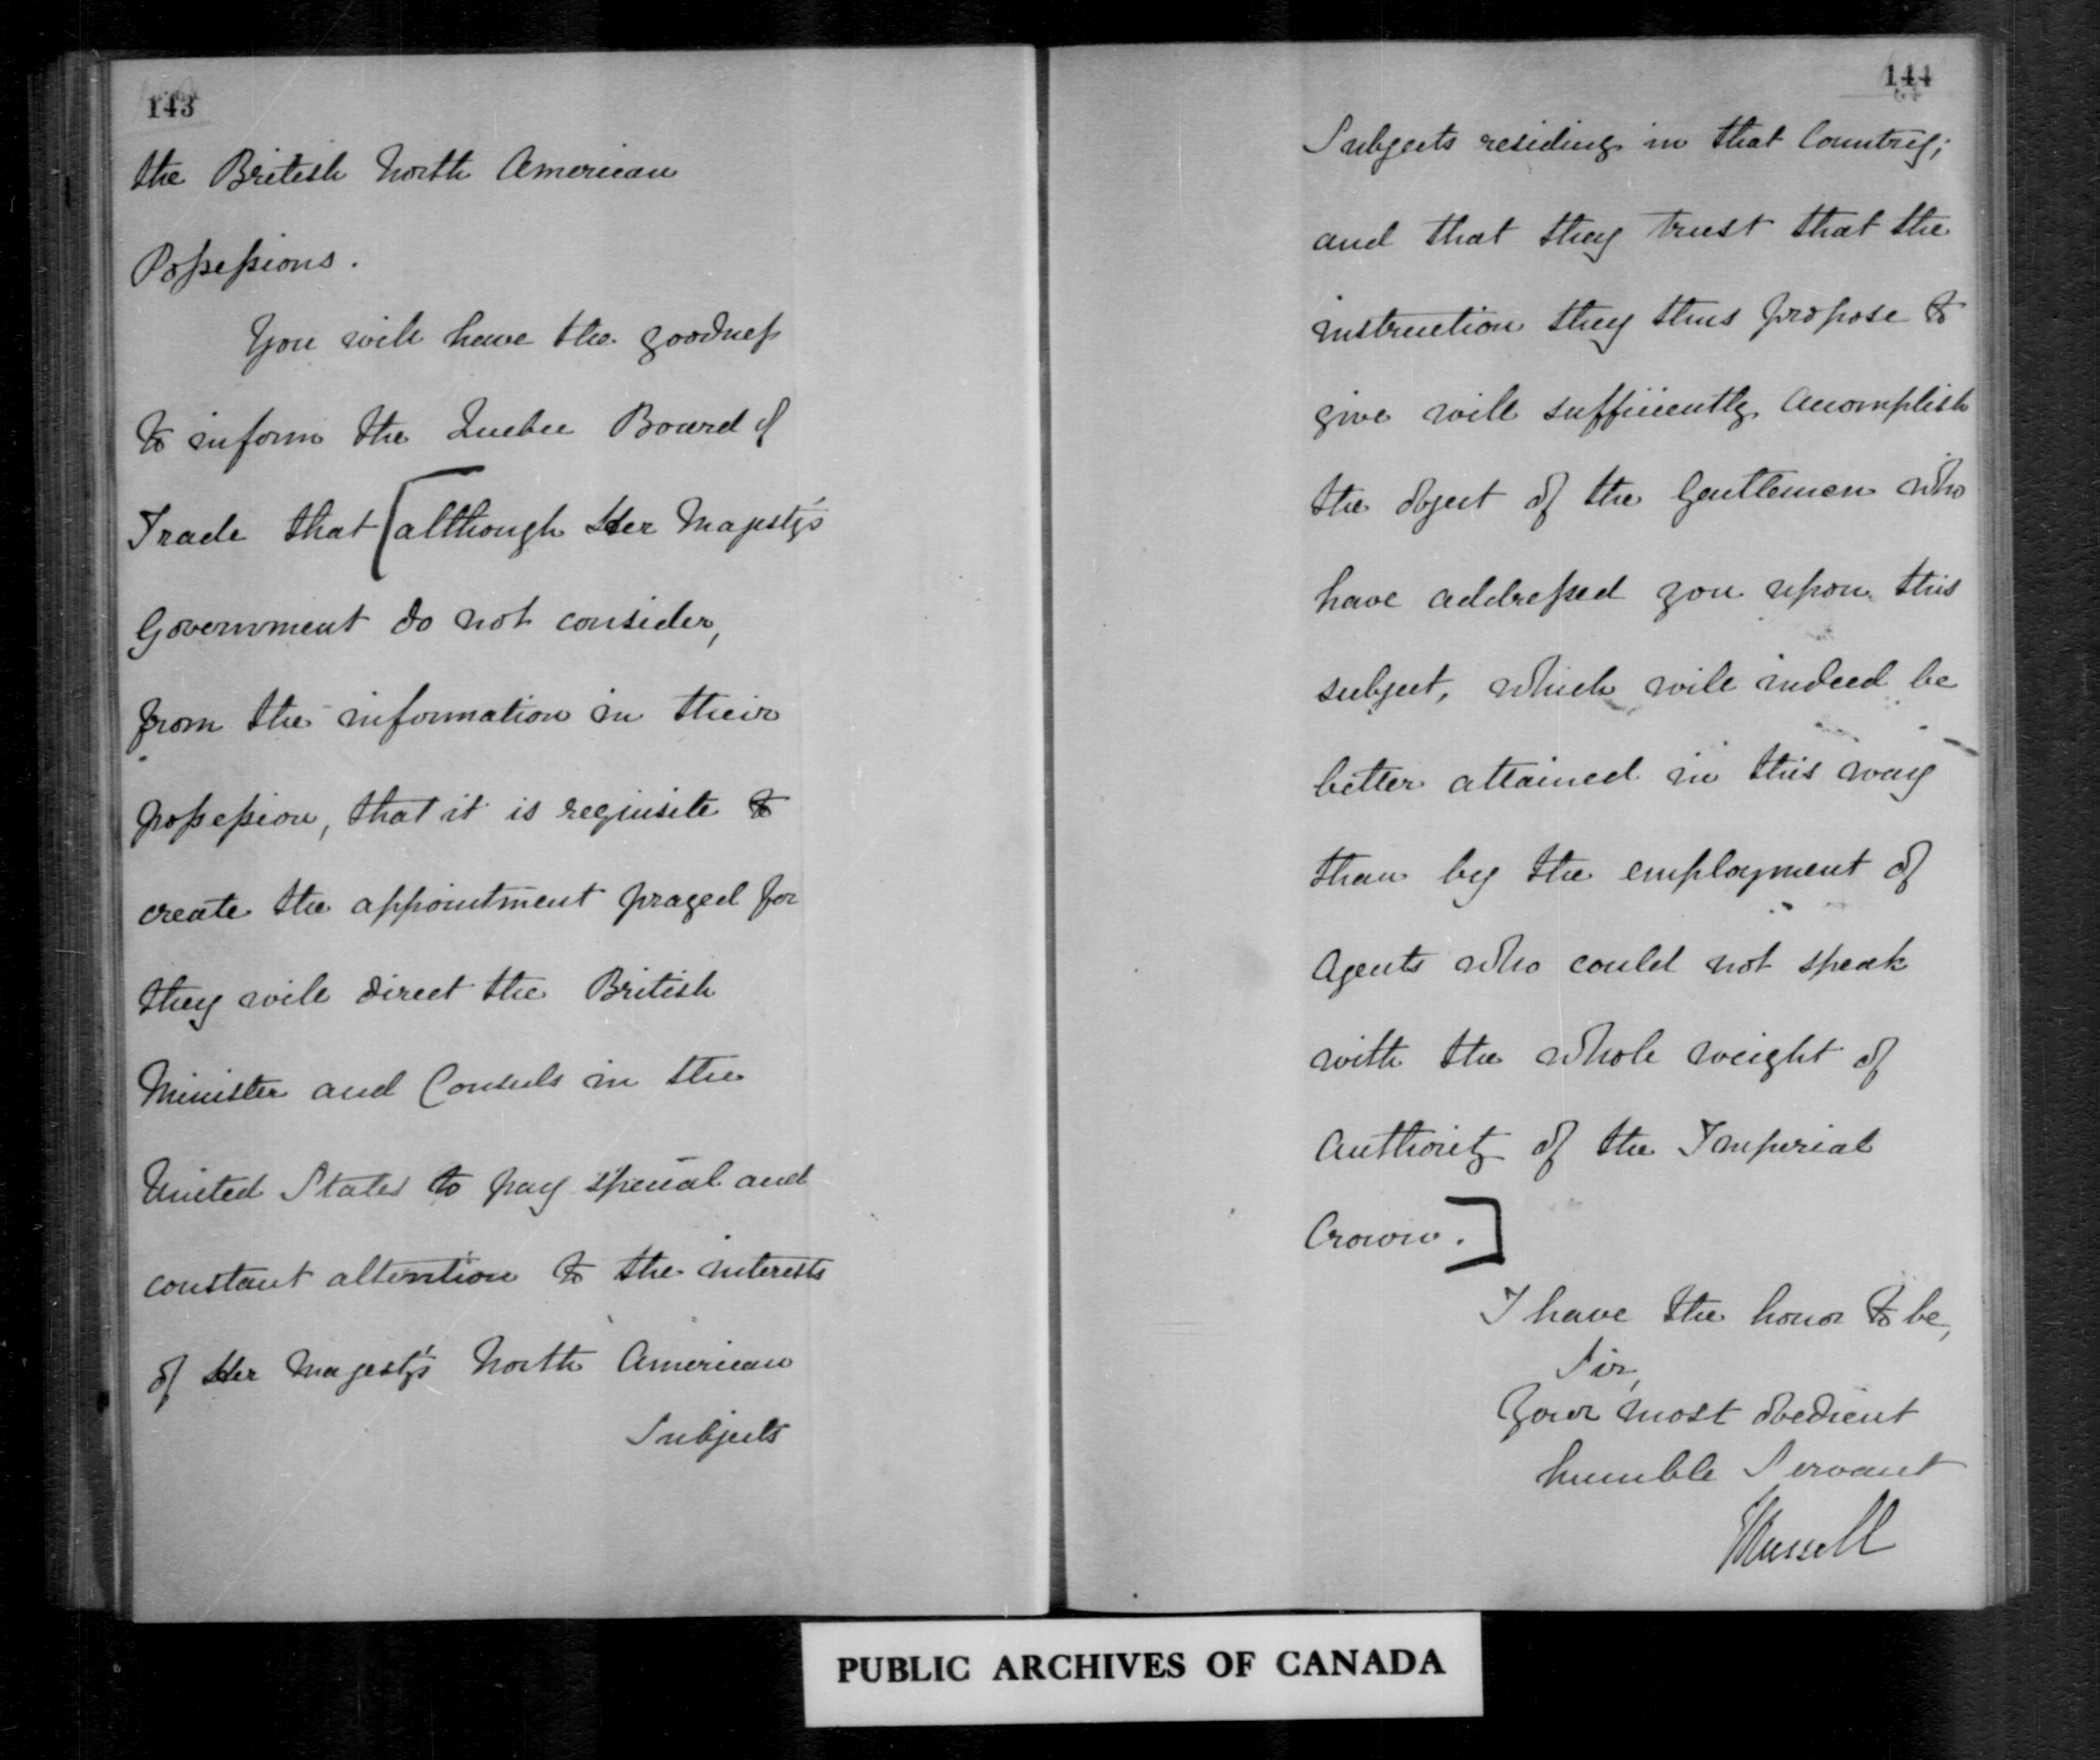 143
the British North American
Possessions.
You will have the goodness
to inform the Quebec Board of
Trade that [although Her Majesty's
Government do not consider,
from the information in their
possession, that it is requisite to
create the appointment prayed for
they will direct the British
Minister and Consuls in the
United States to pay special and
constant attention to the interests
of Her Majesty's North American
Subjects
144
Subjects residing in that Country;
and that they trust that the
instruction they thus propose to
give will sufficiently accomplish
the object of the Gentlemen who
have addressed you upon this
subject, which will indeed be
better attained in this way
than by the employment of
Agents who could not speak
with the whole weight of
Authority of the Imperial
Crown.]
I have the honor to be,
Sir,
Your most obedient
humble Servant
JRussell
PUBLIC ARCHIVES OF CANADA